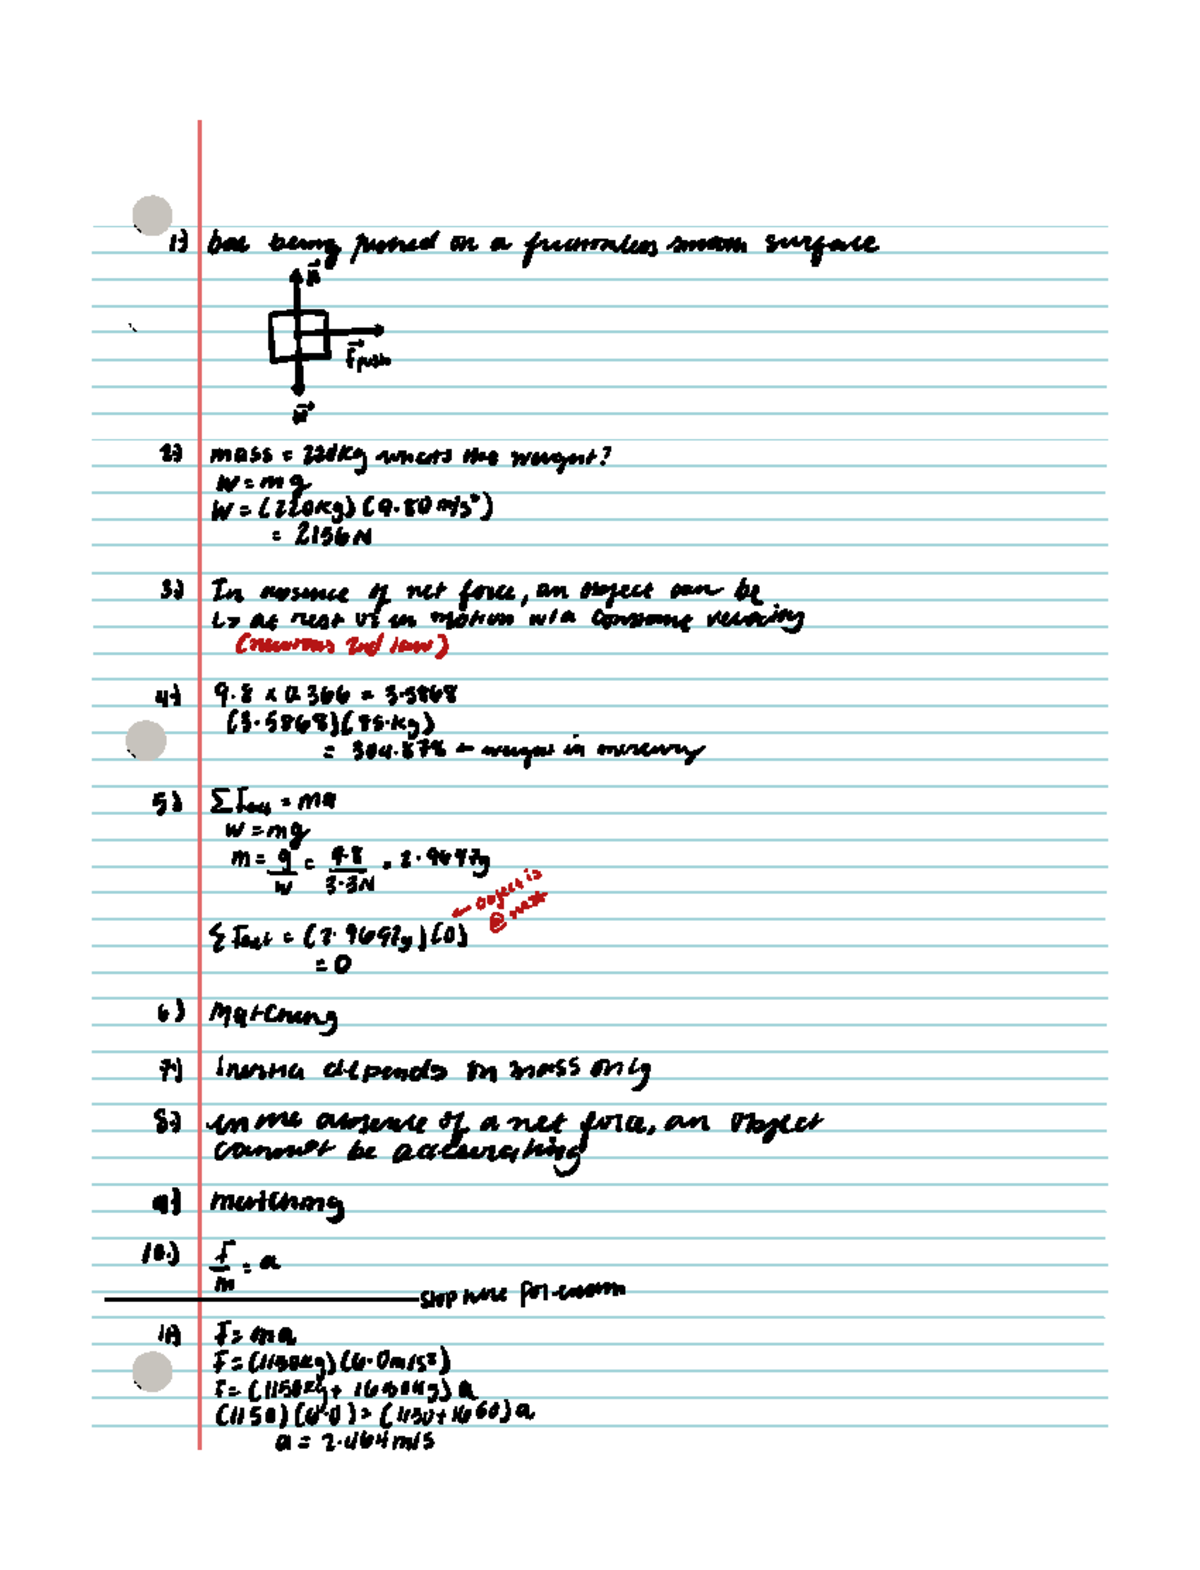 1) box being pushed on a frictionless smooth surface
n
F push
w
2) mass = 220kg what's the weight?
w = mg
w = (220kg) (9.80 m/s²)
= 2156N
3) In absence of net force, an object can be
↳ at rest or in motion w/a constant velocity
(newtons 2nd law)
4) 9.8 x 0.366 = 3.5868
(3.5868)(85.kg)
= 304.878 ← weight in mercury
5) ΣFext = ma
w = mg
m = g/w = 9.8/3.3N = 2.9697g
← object is
@ rest
ΣFext = (2.9697g)(0)
= 0
6) Matching
7) inertia depends on mass only
8) in the absence of a net force, an object
cannot be accelerating
9) matching
10.) F/m = a
stop here for exam
11) F = ma
F = (1150kg)(6.0m/s²)
F = (1150kg + 1650kg) a
(1150)(6.0) = (1150+1650)a
a = 2.464m/s